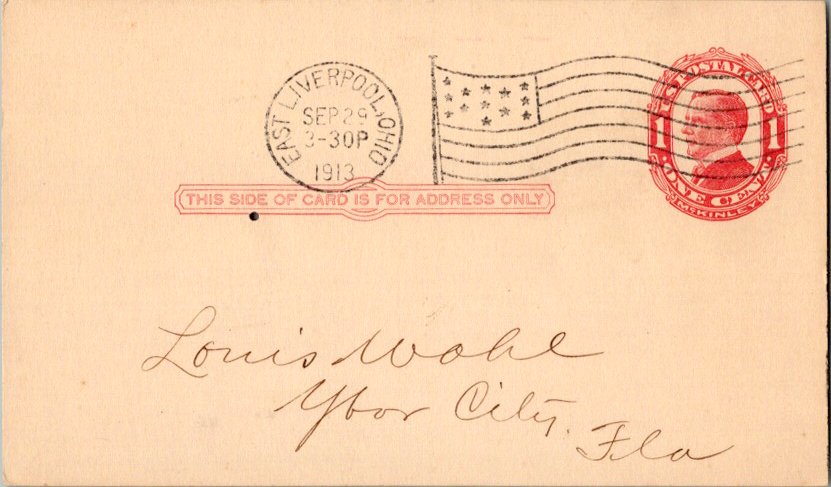 EAST LIVERPOOL, OHIO
SEP 29
3-30P
1913
U.S. POSTAL CARD
1 1
ONE CENT
McKINLEY
THIS SIDE OF CARD IS FOR ADDRESS ONLY
Louis Wohl
Ybor City.
Fla